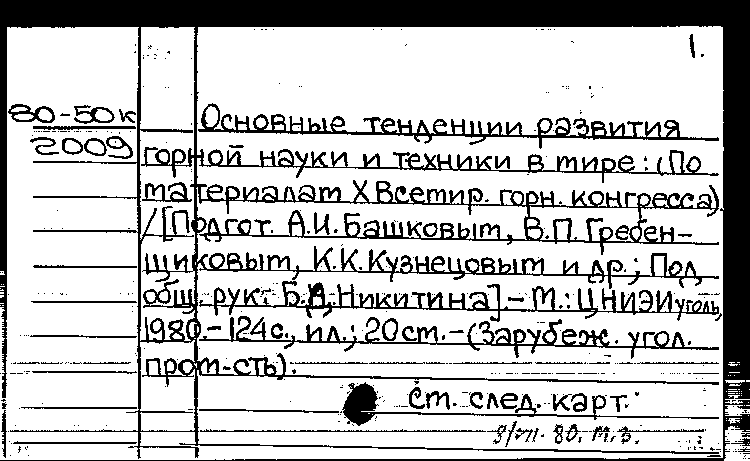 1.
80-50к
2009
Основные тенденции развития
горной науки и техники в мире: (По
материалам X Всемир. горн. конгресса)
/[Подгот. А.И. Башковым, В.П. Гребен-
щиковым, К.К. Кузнецовым и др.; Под
общ. рук. Б. Никитина].- М.: ЦНИЭИуголь,
1980.- 124с., ил.; 20см.-(Зарубеж. угол.
пром-сть).
См. след. карт.
80. м.з.